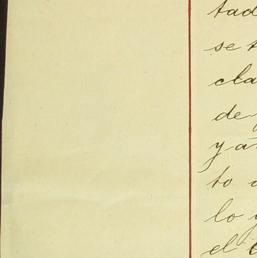 tad
se t
cla
de
ya
to
lo y
el